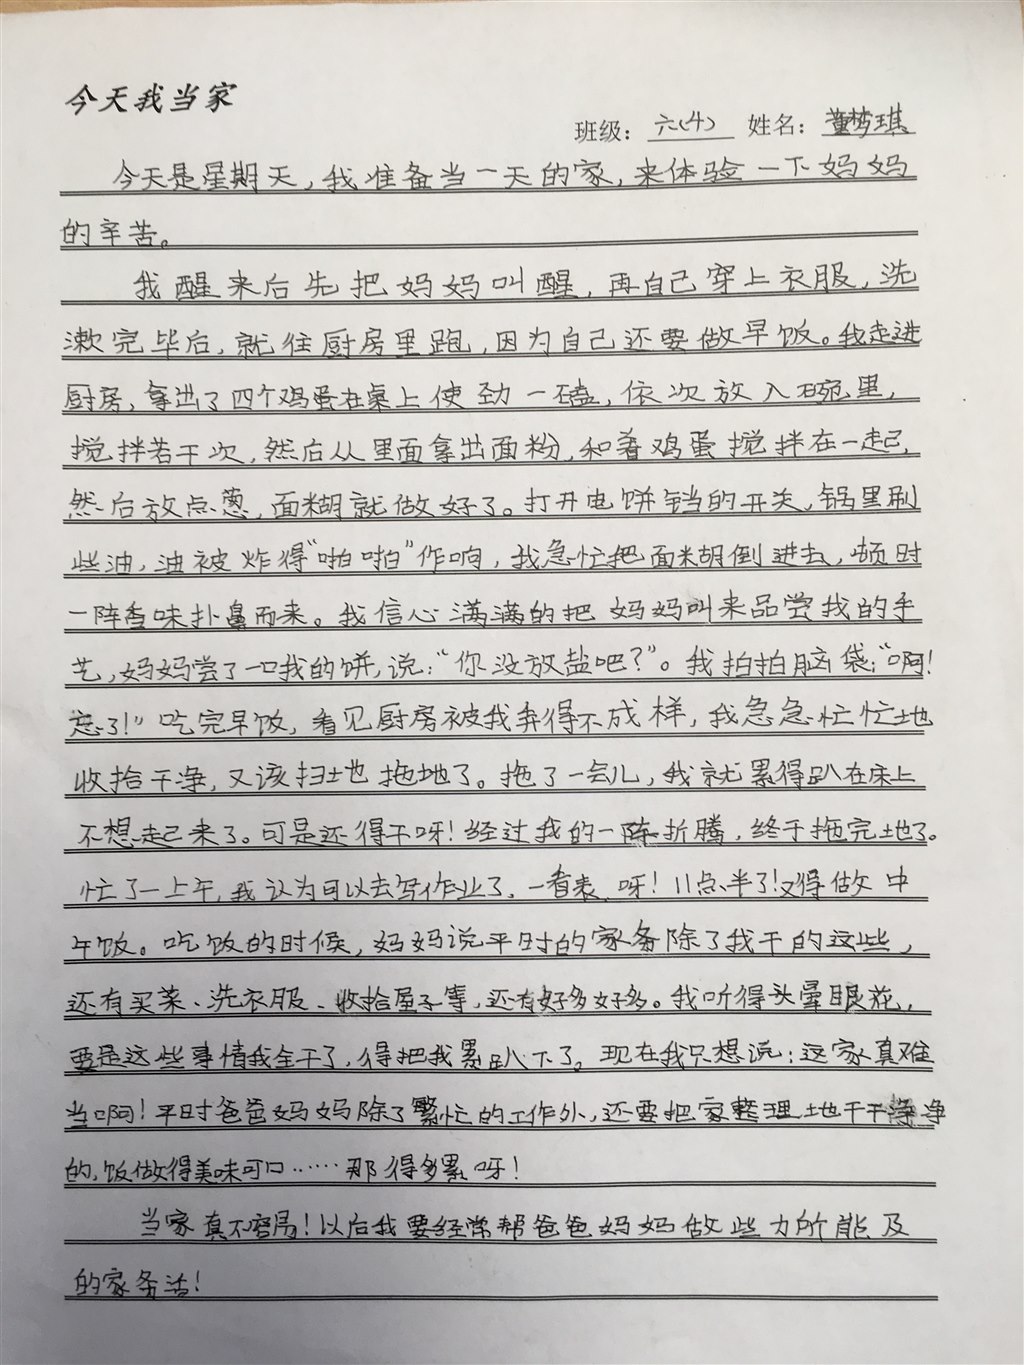 今天我当家
班级：六(4) 姓名：董梦琪
今天是星期天，我准备当一天的家，来体验一下妈妈
的辛苦。
我醒来后先把妈妈叫醒，再自己穿上衣服，洗
漱完毕后，就往厨房里跑，因为自己还要做早饭。我走进
厨房，拿出了四个鸡蛋在桌上使劲一磕，依次放入碗里，
搅拌若干次，然后从里面拿出面粉，和着鸡蛋搅拌在一起，
然后放点葱，面糊就做好了。打开电饼铛的开关，锅里刷
些油，油被炸得“啪啪”作响，我急忙把面糊倒进去，顿时
一阵香味扑鼻而来。我信心满满的把妈妈叫来品尝我的手
艺，妈妈尝了一口我的饼，说：“你没放盐吧？”。我拍拍脑袋：“啊！
忘了！”吃完早饭，看见厨房被我弄得不成样，我急急忙忙地
收拾干净，又该扫地拖地了。拖了一会儿，我就累得趴在床上
不想起来了。可是还得干呀！经过我的一阵折腾，终于拖完地了。
忙了一上午，我认为可以去写作业了，一看表，呀！11点半了！又得做中
午饭。吃饭的时候，妈妈说平时的家务除了我干的这些，
还有买菜、洗衣服、收拾屋子等，还有好多好多。我听得头晕眼花，
要是这些事情我全干了，得把我累趴下了。现在我只想说：这家真难
当啊！平时爸爸妈妈除了繁忙的工作外，还要把家整理地干干净净
的，饭做得美味可口……那得多累呀！
当家真不容易！以后我要经常帮爸爸妈妈做些力所能及
的家务活！